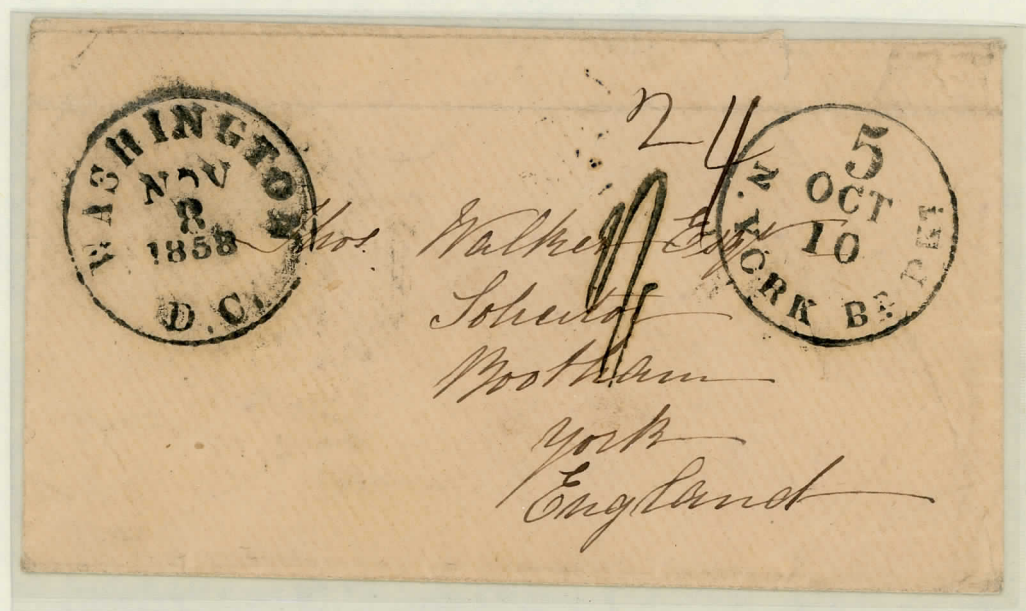 WASHINGTON
NOV
8
1858
D.C.
24
5
OCT
10
N. YORK BR PKT
Thos. Walker Esqr
Solicitor
Bootham
York
England